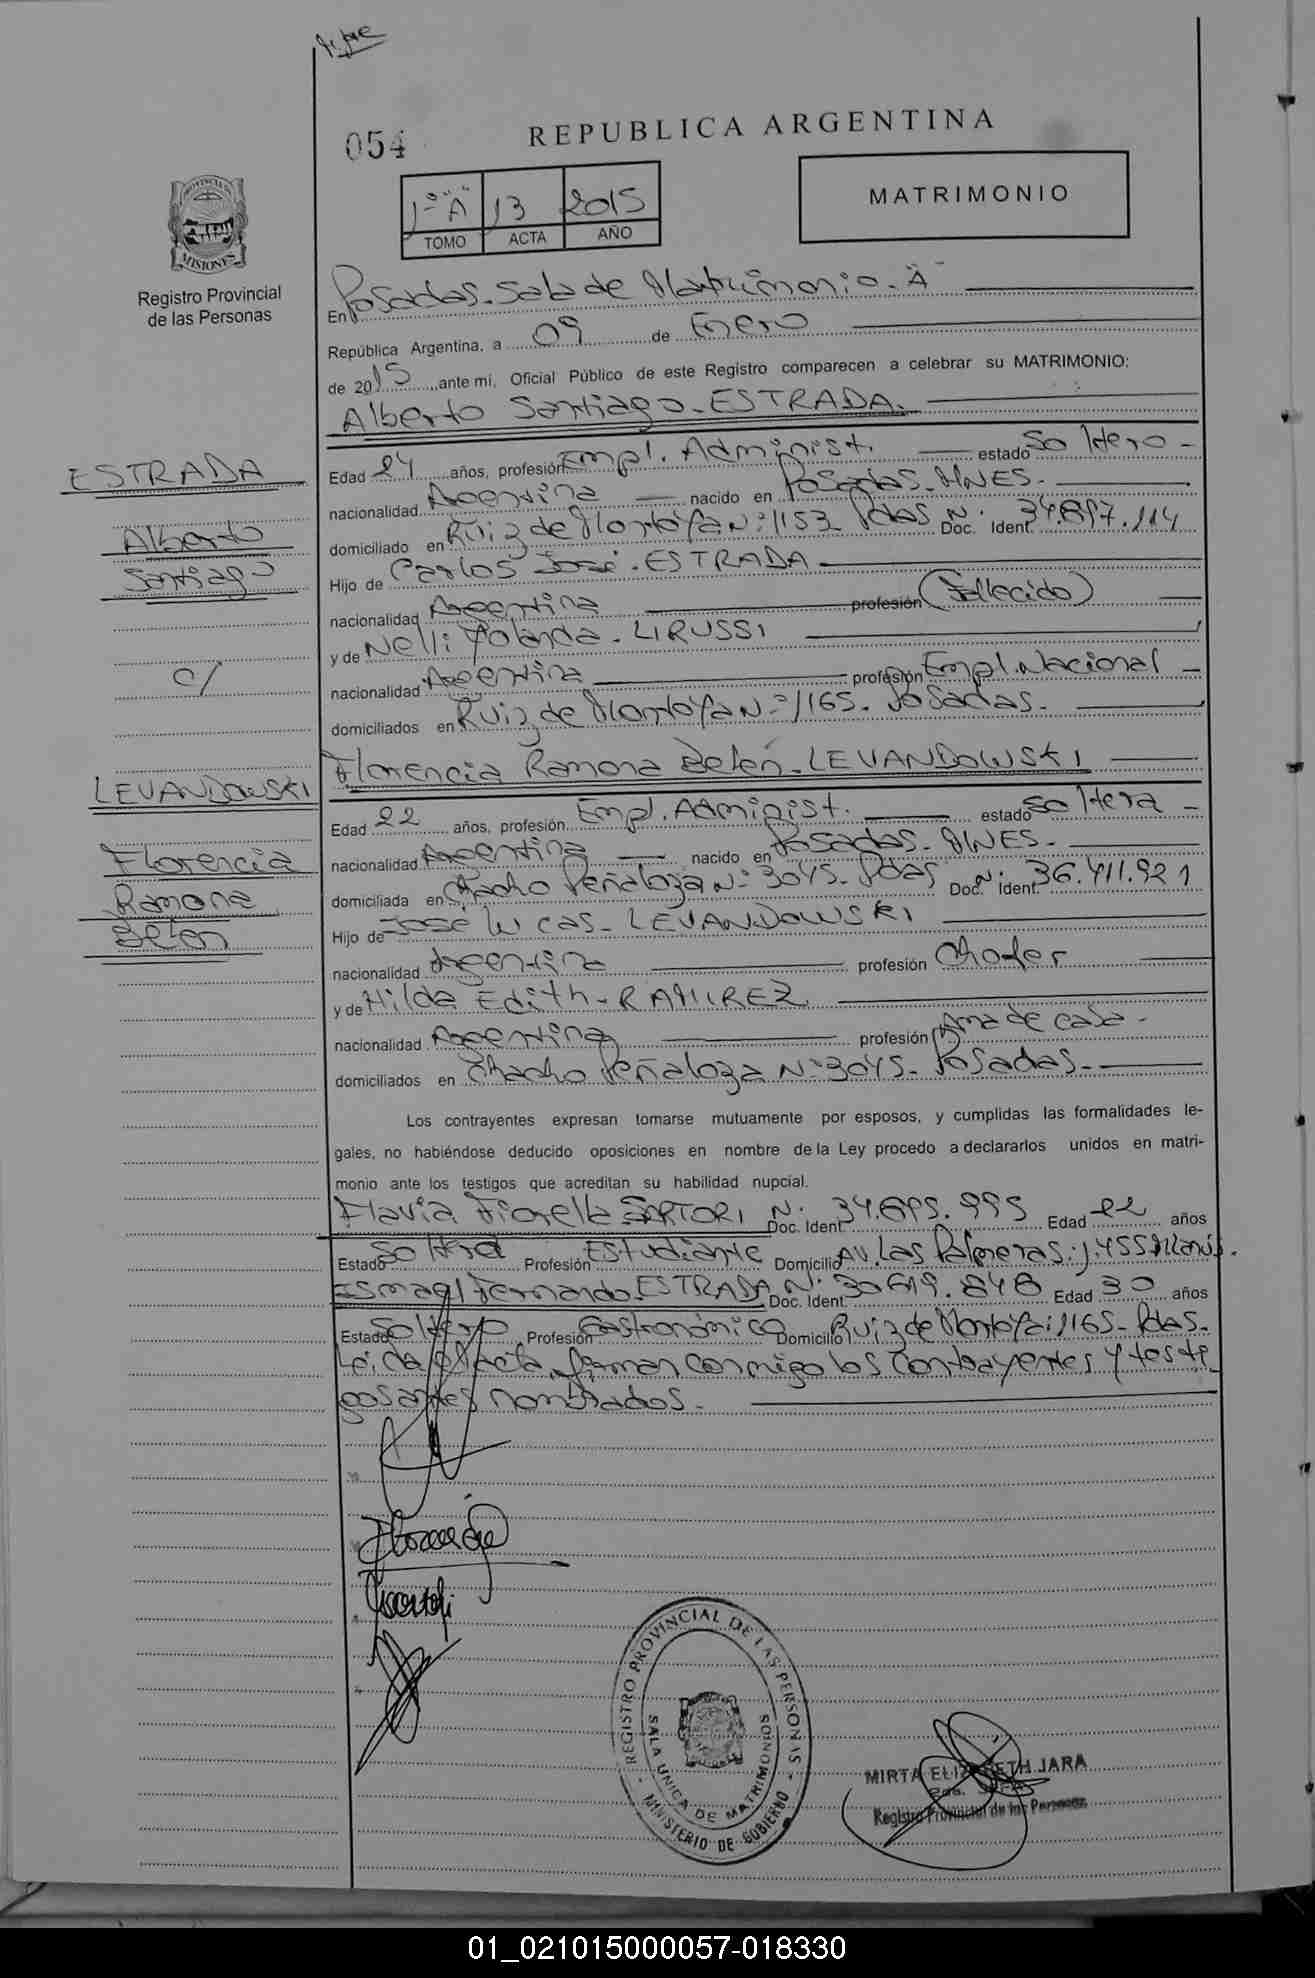 054
REPUBLICA ARGENTINA
1º "A" 13 2015
TOMO ACTA AÑO
MATRIMONIO
PROVINCIA DE
MISIONES
Registro Provincial
de las Personas
En Posadas. Sala de Matrimonio. "A"
República Argentina, a 09 de Enero
de 2015, ante mí, Oficial Público de este Registro comparecen a celebrar su MATRIMONIO:
Alberto Santiago. ESTRADA.
ESTRADA
Alberto
Santiago
c/
LEVANDOWSKI
Florencia
Ramona
Belen
Edad 24 años, profesión Empl. Administ. estado Soltero -
nacionalidad Argentina nacido en Posadas. MNES.
domiciliado en Ruiz de Montoya Nº: 1153 Pdas Doc. Ident. Nº: 34.897.114
Hijo de Carlos José. ESTRADA
nacionalidad Argentina profesión (Fallecido)
y de Nelli Yolanda. LIRUSSI
nacionalidad Argentina profesión Empl. Nacional -
domiciliados en Ruiz de Montoya Nº 1165. Posadas.
Florencia Ramona Belén. LEVANDOWSKI
Edad 22 años, profesión Empl. Administ. estado Soltera -
nacionalidad Argentina nacido en Posadas. MNES.
domiciliada en Chacho Peñaloza Nº 3045. Pdas Doc. Ident. Nº: 36.411.921
Hijo de José Lucas. LEVANDOWSKI
nacionalidad Argentina profesión Chofer
y de Hilda Edith. RAMIREZ
nacionalidad Argentina profesión Ama de casa.
domiciliados en Chacho Peñaloza Nº 3045. Posadas.
Los contrayentes expresan tomarse mutuamente por esposos, y cumplidas las formalidades le-
gales, no habiéndose deducido oposiciones en nombre de la Ley procedo a declararlos unidos en matri-
monio ante los testigos que acreditan su habilidad nupcial.
Flavia Fiorella SARTORI Doc. Ident. Nº: 34.895.995 Edad 22 años
Estado Soltera Profesión Estudiante Domicilio Av. Las Palmeras:
Ismael Fernando. ESTRADA Doc. Ident. Nº: 30619.848 Edad 30 años
Estado Soltero Profesión Gastronómico Domicilio Ruiz de Montoya: 1165. Pdas.
Leída el Acta, firman conmigo los contrayentes y testi
gos antes nombrados.
REGISTRO PROVINCIAL DE LAS PERSONAS
SALA UNICA DE MATRIMONIOS
MINISTERIO DE GOBIERNO
MIRTA ELIZABETH JARA
Registro Provincial de las Personas
01_021015000057-018330